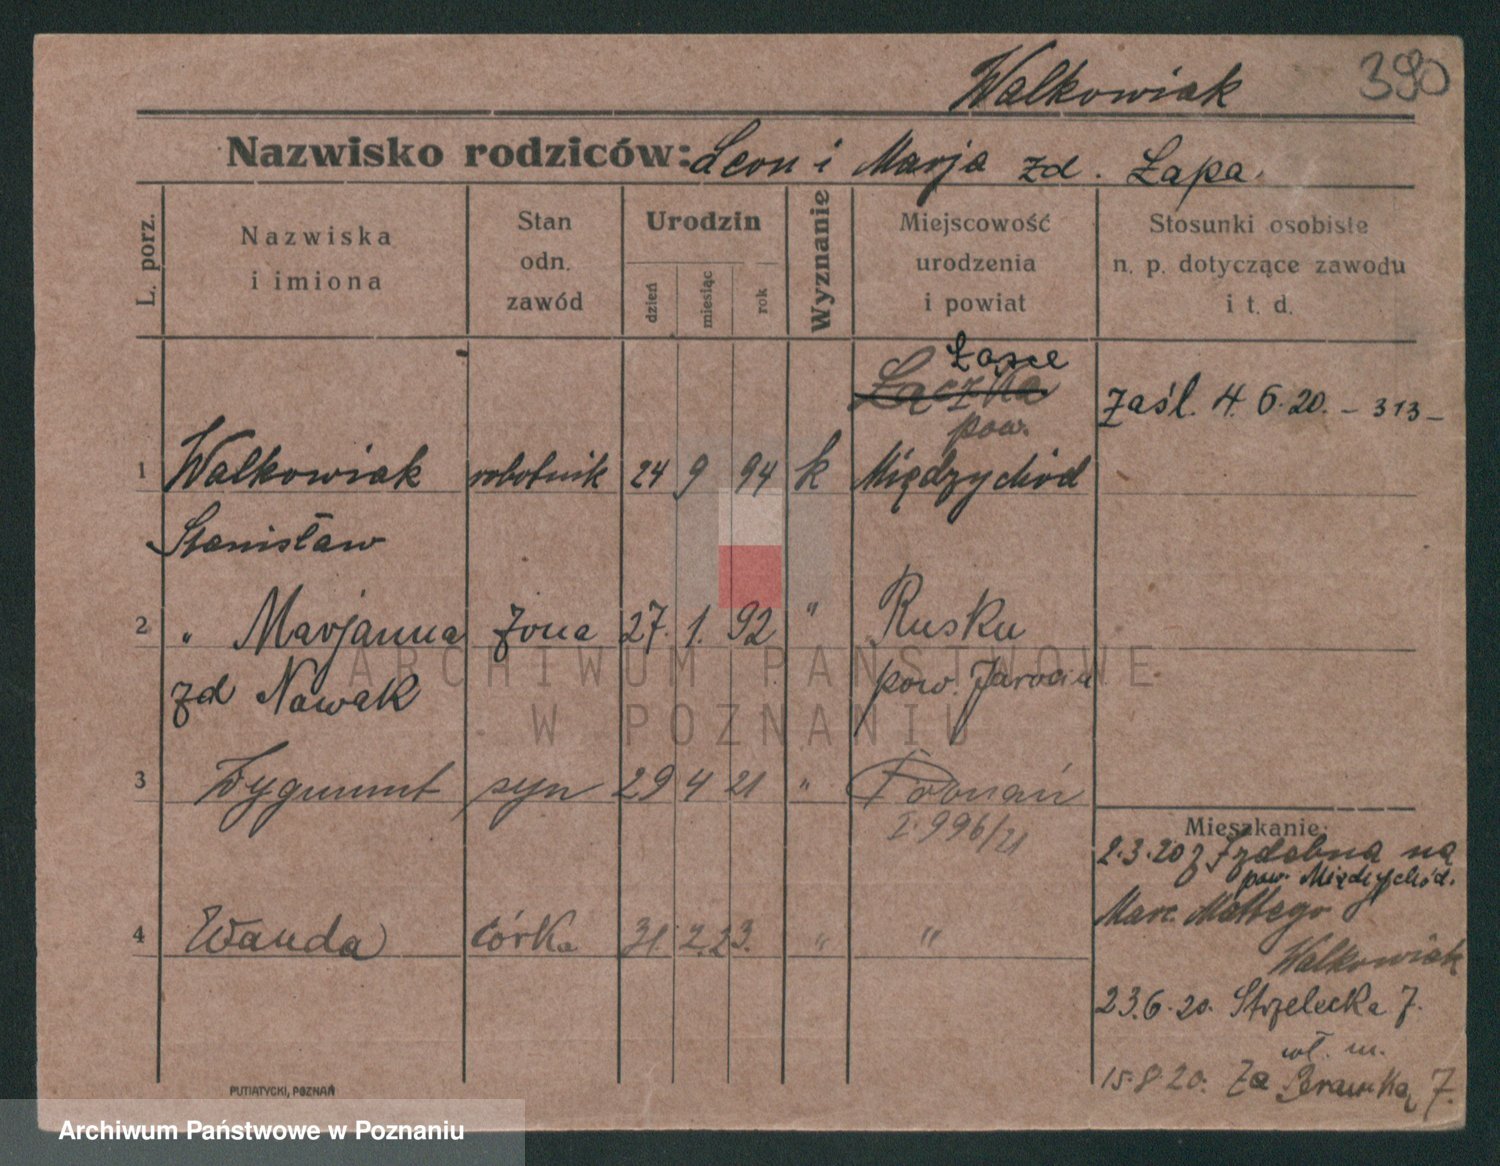 Walkowiak 390
Nazwisko rodziców: Leon i Marja zd. Łapa.
L. porz.
Nazwiska
i imiona
Stan
odn.
zawód
Urodzin
dzień
miesiąc
rok
Wyznanie
Miejscowość
urodzenia
i powiat
Stosunki osobiste
n. p. dotyczące zawodu
i t. d.
Łączna
pow.
zaśl. 4. 6. 20. - 313 -
1 Walkowiak robotnik 24 9 94 k Międzychód
Stanisław
2 " Marjanna żona 27. 1. 92 " Rusku
zd Nowak pow. Jarocin
3 Zygmunt syn 29 4 21 " Poznań
I. 996/21
4 Wanda córka 31. 7. 23. " "
Mieszkanie:
2. 3. 20 z na
pow. Międzychód.
Marc.
Walkowiak
23. 6. 20. Strzelecka 7.
wł. m.
15. 8. 20. Za Bramką 7.
PUTIATYCKI, POZNAŃ
ARCHIWUM PAŃSTWOWE
W POZNANIU
Archiwum Państwowe w Poznaniu